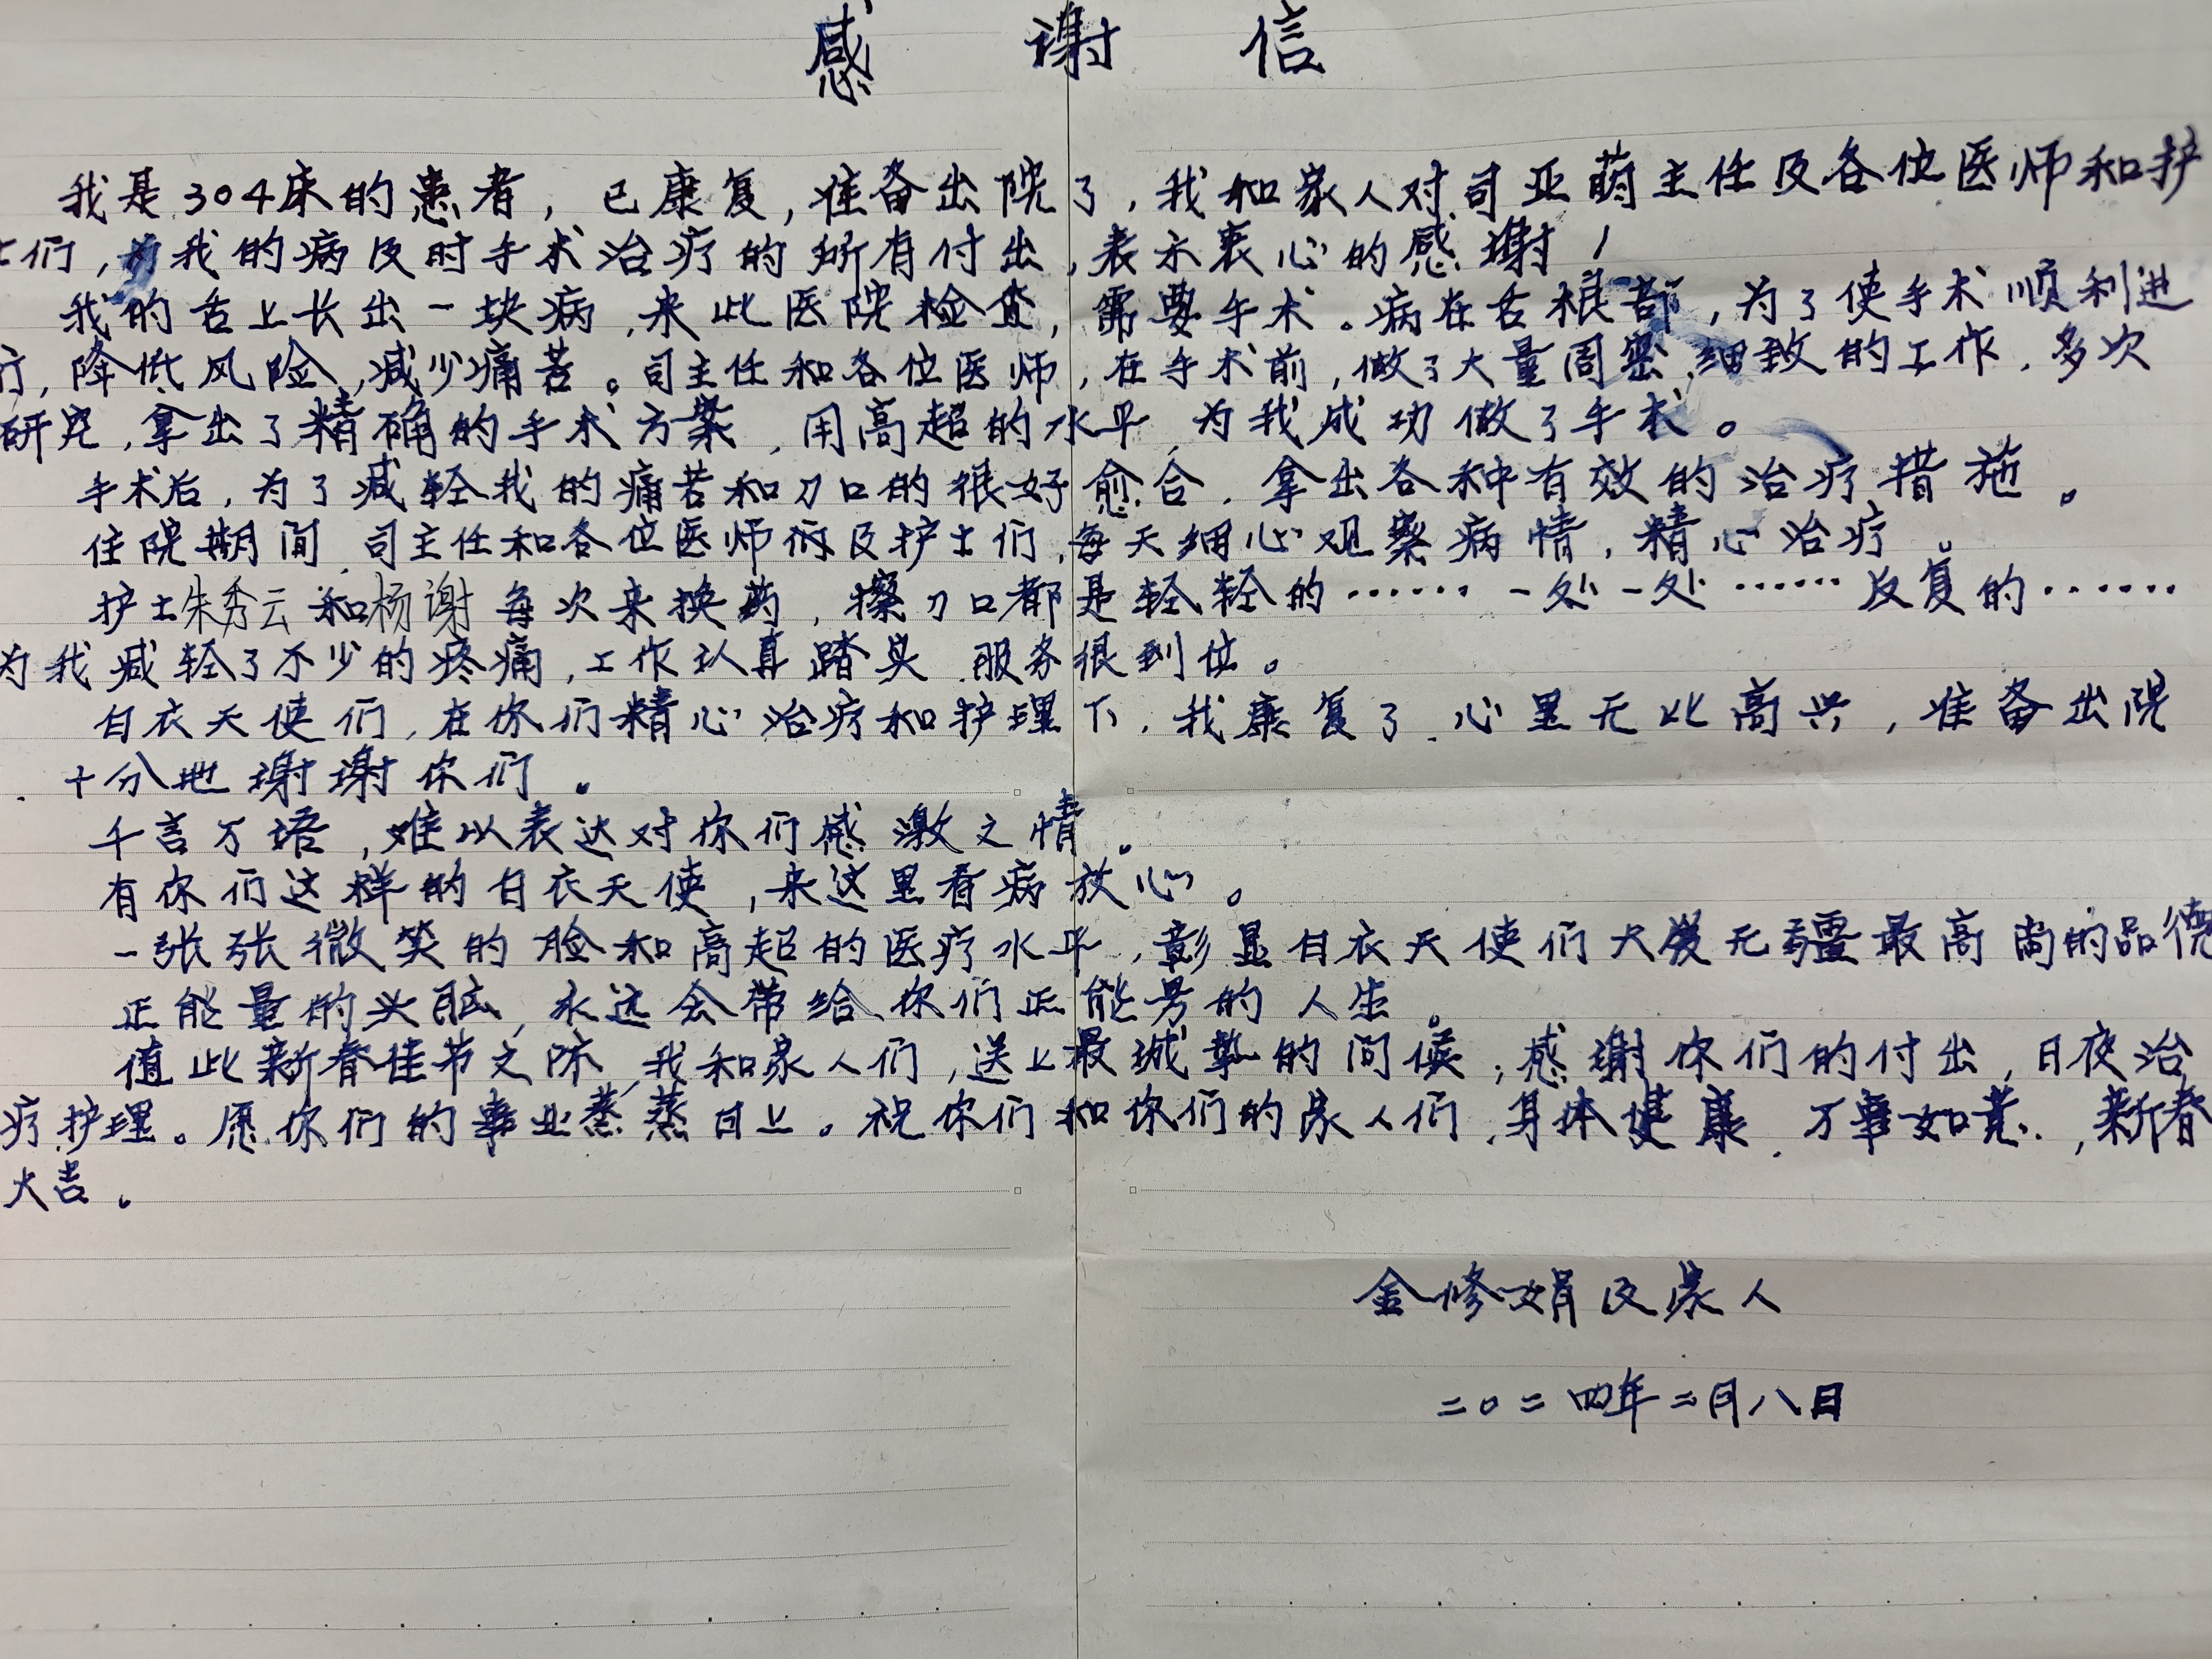 感谢信
我是304床的患者，已康复，准备出院了，我和家人对司亚萌主任及各位医师和护
士们，为我的病及时手术治疗的所有付出，表示衷心的感谢！
我的舌上长出一块病，来此医院检查，需要手术。病在舌根部，为了使手术顺利进
行，降低风险，减少痛苦。司主任和各位医师，在手术前，做了大量周密、细致的工作，多次
研究，拿出了精确的手术方案，用高超的水平，为我成功做了手术。
手术后，为了减轻我的痛苦和刀口的很好愈合，拿出各种有效的治疗措施。
住院期间，司主任和各位医师们及护士们，每天细心观察病情，精心治疗。
护士朱秀云和杨谢每次来换药，擦刀口都是轻轻的……一处一处……反复的……
为我减轻了不少的疼痛，工作认真踏实，服务很到位。
白衣天使们，在你们精心治疗和护理下，我康复了，心里无比高兴，准备出院
，十分地谢谢你们。
千言万语，难以表达对你们感激之情。
有你们这样的白衣天使，来这里看病放心。
一张张微笑的脸和高超的医疗水平，彰显白衣天使们大爱无疆最高尚的品德
正能量的头脑，永远会带给你们正能量的人生。
值此新春佳节之际，我和家人们，送上最诚挚的问候，感谢你们的付出，日夜治
疗护理。愿你们的事业蒸蒸日上。祝你们和你们的家人们，身体健康，万事如意，新春
大吉。
金修娟及家人
二〇二四年二月八日